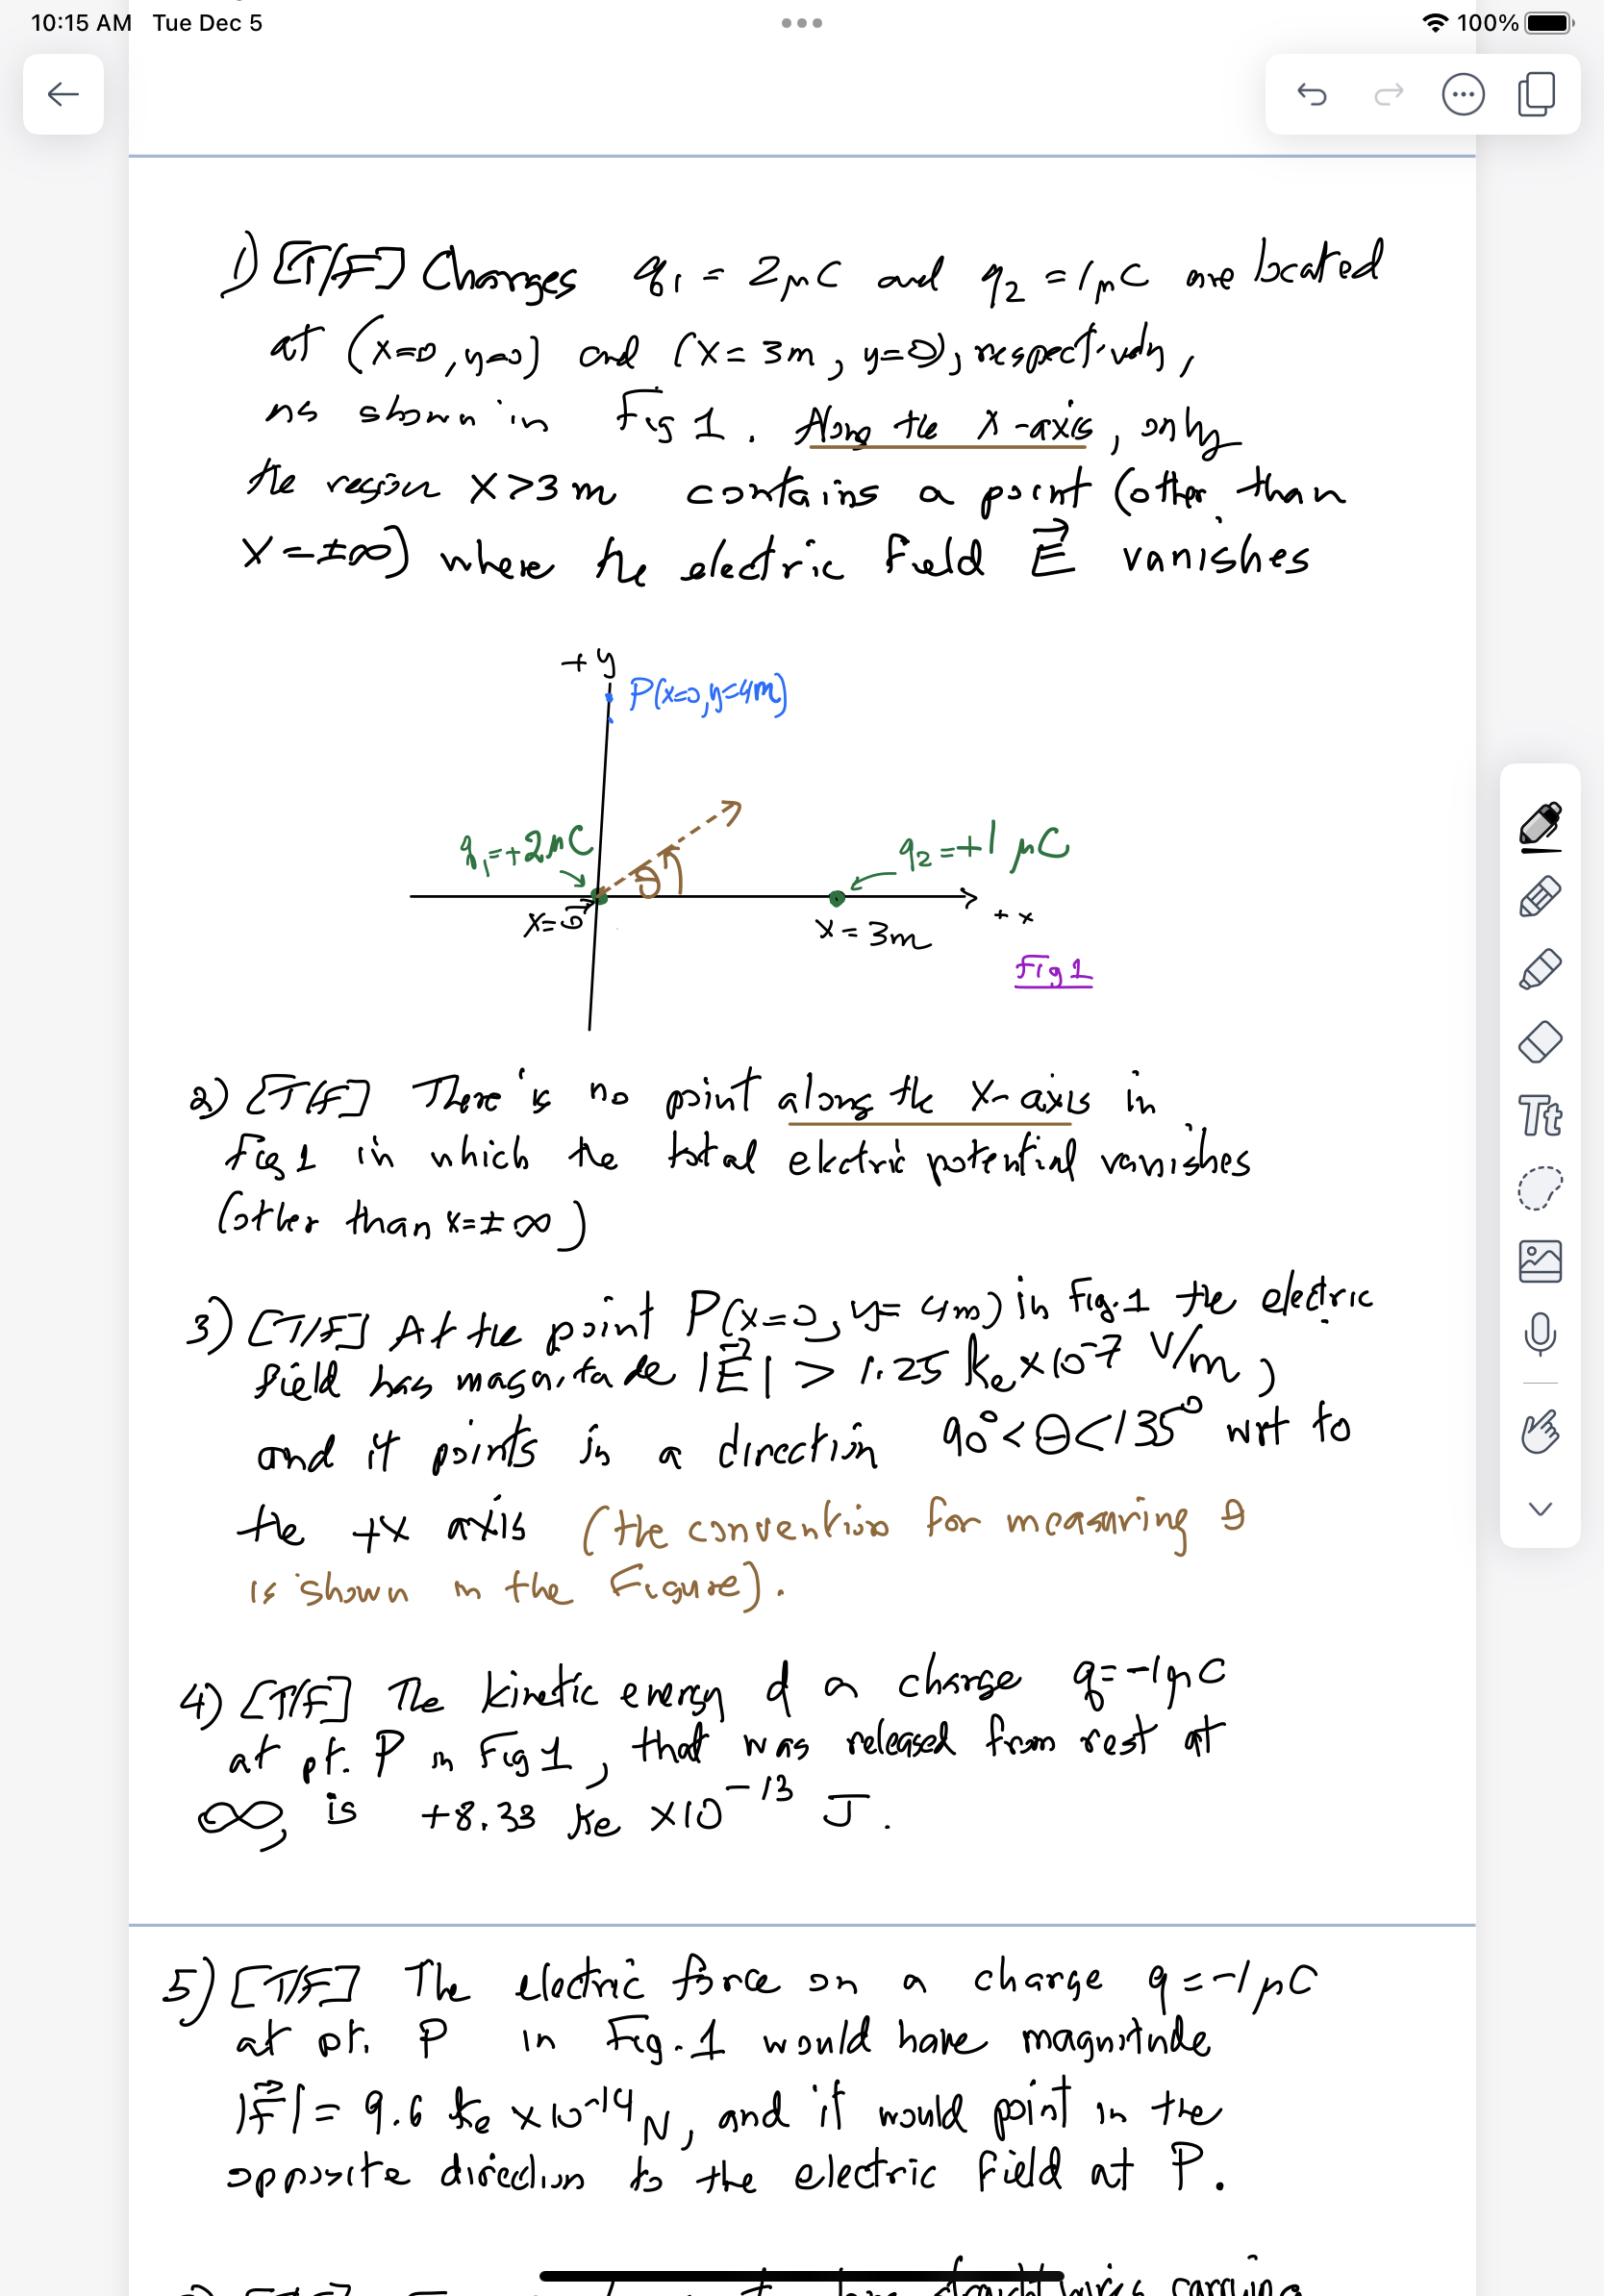 10:15 AM Tue Dec 5
100%
1) [T/F] Charges q1 = 2μC and q2 = 1μC are located
at (x=0, y=0) and (x = 3m, y=0), respectively,
as shown in Fig 1. Along the x-axis, only
the region x>3m contains a point (other than
x=±∞) where the electric field E⃗ vanishes
+y
P(x=0,y=4m)
q1=+2μC
q2=+1 μC
θ
x=0
x=3m
+x
Fig 1
2) [T/F] There is no point along the x-axis in
Fig 1 in which the total electric potential vanishes
(other than x=±∞)
3) [T/F] At the point P(x=0, y=4m) in Fig.1 the electric
field has magnitude |E⃗| > 1.25 ke×10⁻⁷ V/m,
and it points in a direction 90°<θ<135° wrt to
the +x axis (the convention for measuring θ
is shown in the Figure).
4) [T/F] The kinetic energy of a charge q=-1μC
at pt. P in Fig 1, that was released from rest at
∞, is +8.33 ke ×10⁻¹³ J.
5) [T/F] The electric force on a charge q=-1μC
at pt. P in Fig.1 would have magnitude
|F⃗| = 9.6 ke ×10⁻¹⁴ N, and it would point in the
opposite direction to the electric field at P.
Tt